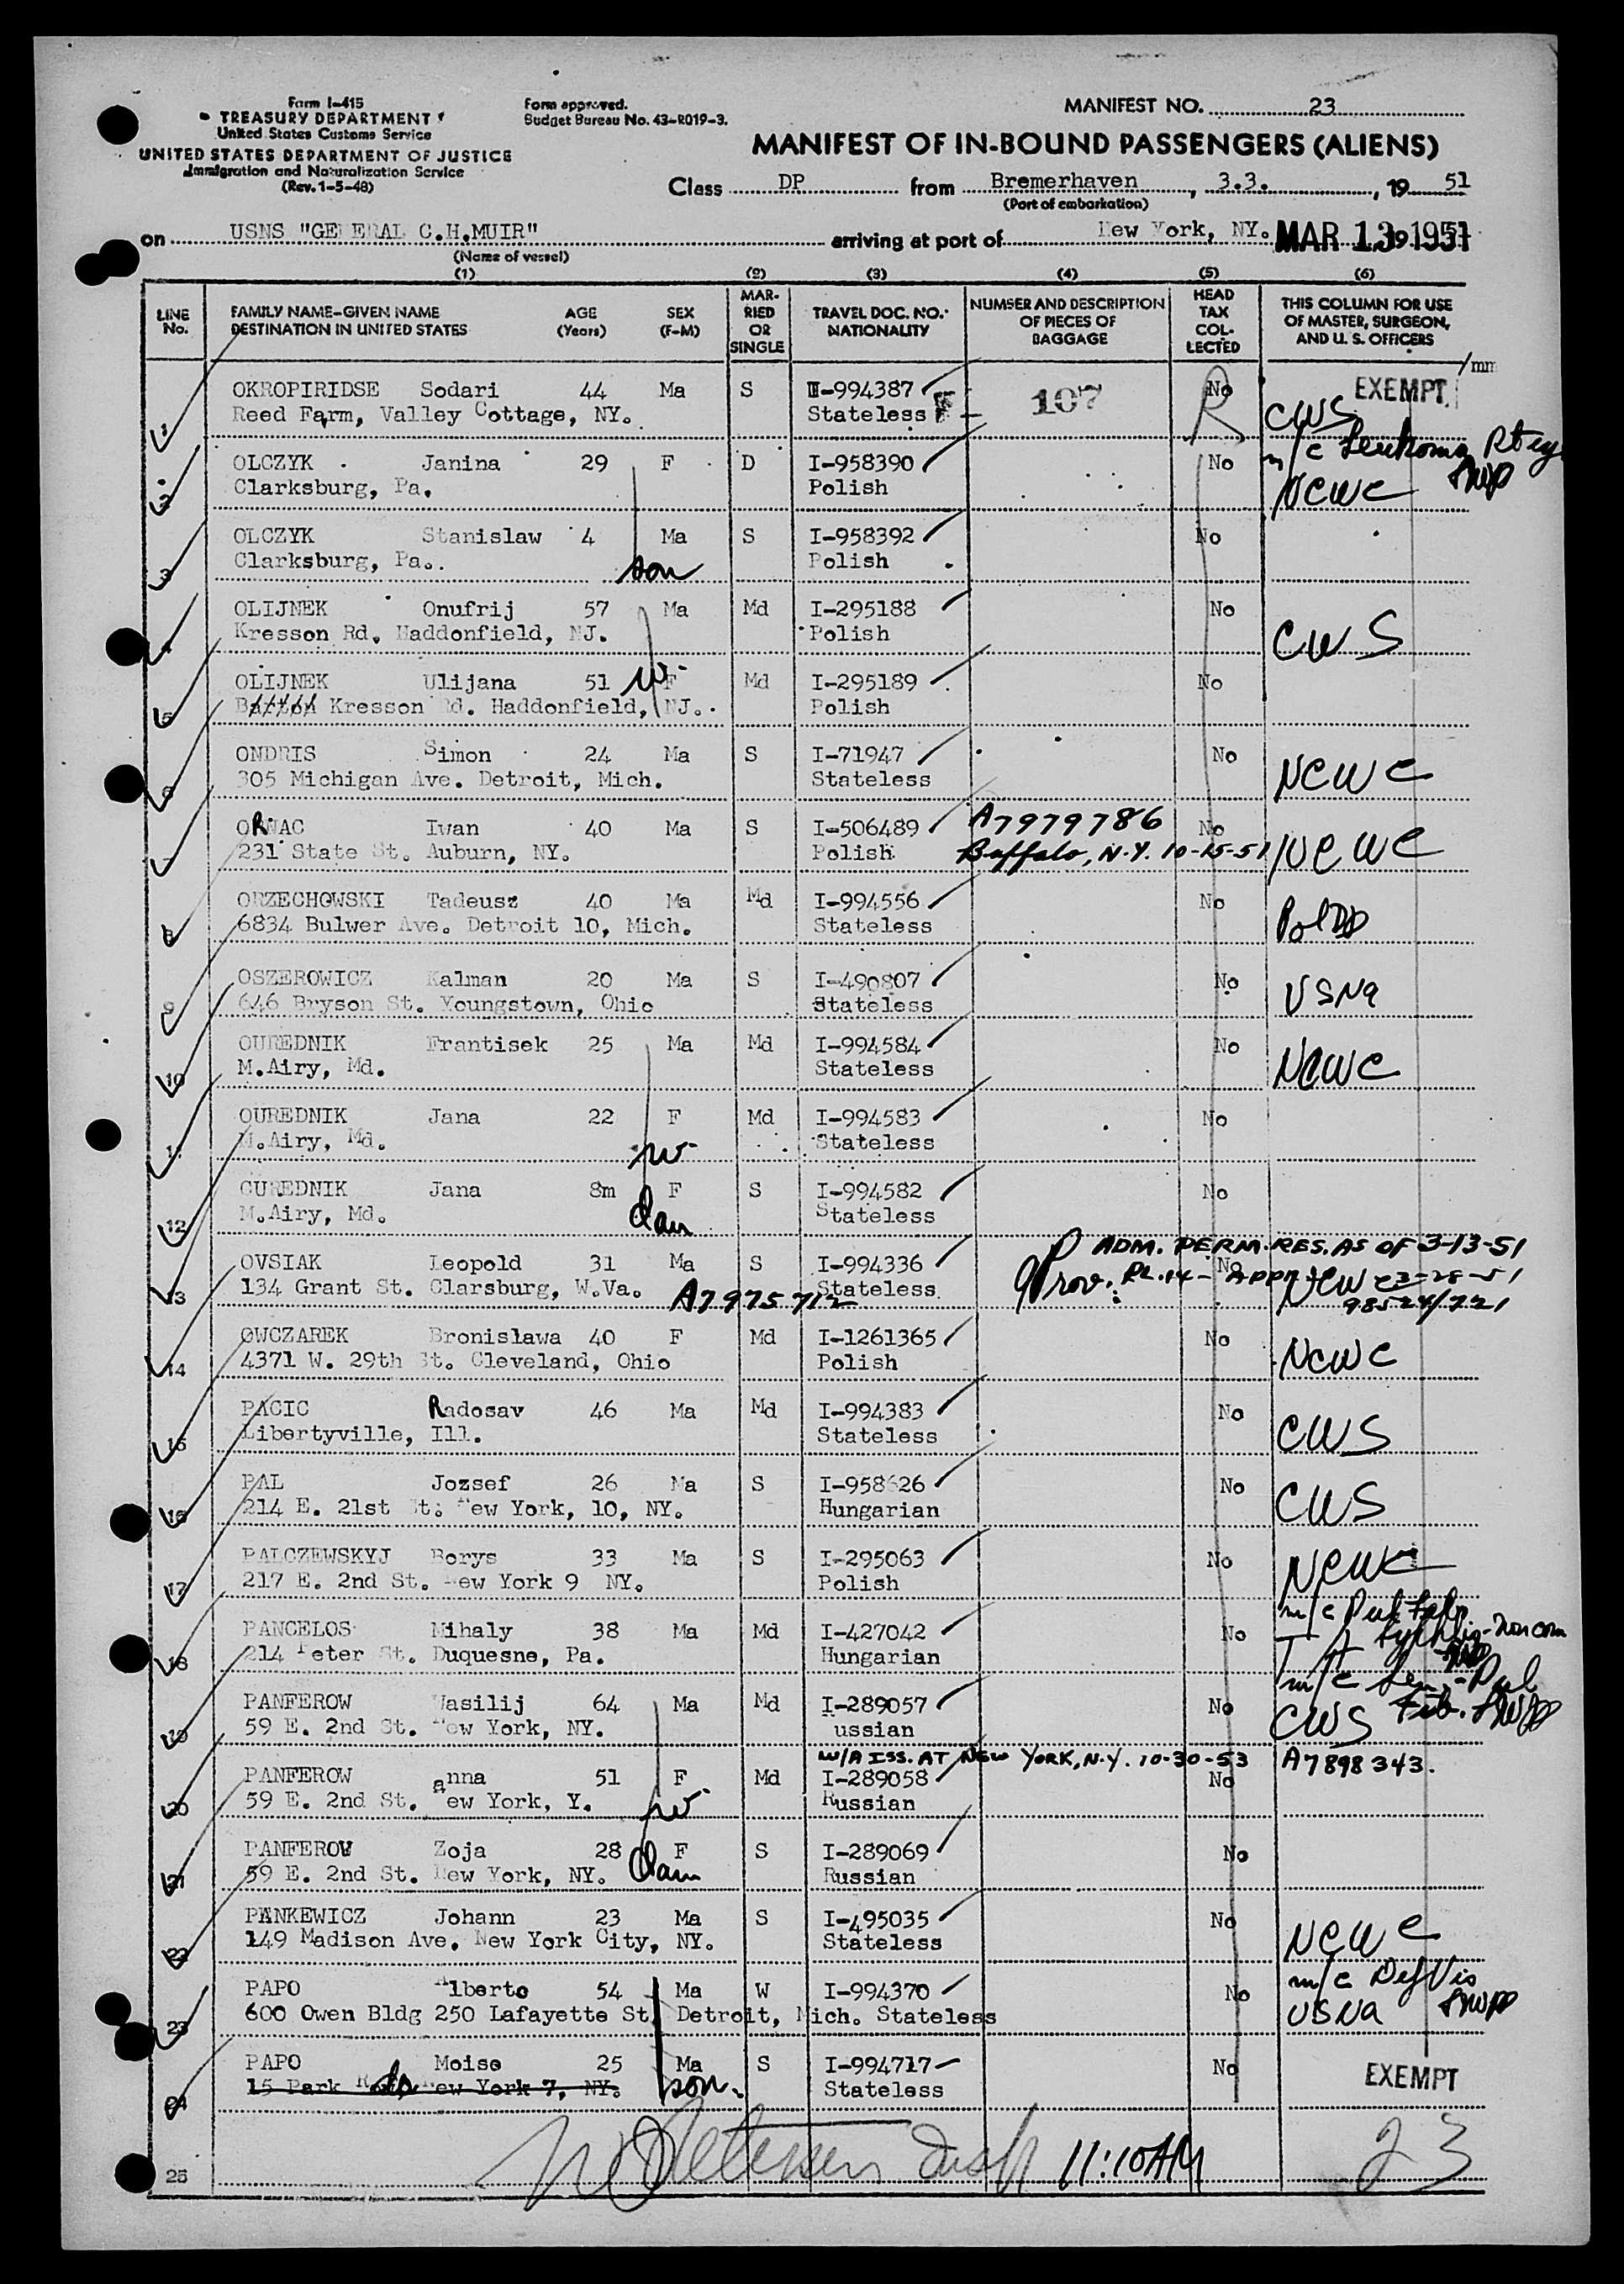 Form I-415
TREASURY DEPARTMENT
United States Customs Service
UNITED STATES DEPARTMENT OF JUSTICE
Immigration and Naturalization Service
(Rev. 1-5-48)
Form approved.
Budget Bureau No. 43-R019-3.
MANIFEST NO. 23
MANIFEST OF IN-BOUND PASSENGERS (ALIENS)
Class DP from Bremerhaven, 3.3., 19 51
(Port of embarkation)
on USNS "GENERAL C.H.MUIR" arriving at port of New York, NY. MAR 13 1951
(Name of vessel)
(1) (2) (3) (4) (5) (6)
LINE No.
FAMILY NAME-GIVEN NAME AGE SEX
DESTINATION IN UNITED STATES (Years) (F-M)
MAR-RIED OR SINGLE
TRAVEL DOC. NO. NATIONALITY
NUMBER AND DESCRIPTION OF PIECES OF BAGGAGE
HEAD TAX COL-LECTED
THIS COLUMN FOR USE OF MASTER, SURGEON, AND U. S. OFFICERS
1 OKROPIRIDSE Sodari 44 Ma S I-994387 107 No EXEMPT
Reed Farm, Valley Cottage, NY. Stateless CWS
m/c Leukoma Rt eye
2 OLCZYK Janina 29 F D I-958390 No
Clarksburg, Pa. Polish NCWC
3 OLCZYK Stanislaw 4 Ma S I-958392 No
Clarksburg, Pa. son Polish
4 OLIJNEK Onufrij 57 Ma Md I-295188 No
Kresson Rd. Haddonfield, NJ. Polish CWS
5 OLIJNEK Ulijana 51 w F Md I-295189 No
Kresson Rd. Haddonfield, NJ. Polish
6 ONDRIS Simon 24 Ma S I-71947 No
305 Michigan Ave. Detroit, Mich. Stateless NCWC
7 ORWAC Iwan 40 Ma S I-506489 A7979786 No
231 State St. Auburn, NY. Polish Buffalo, N.Y. 10-15-51 NCWC
8 ORZECHOWSKI Tadeusz 40 Ma Md I-994556 No
6834 Bulwer Ave. Detroit 10, Mich. Stateless
9 OSZEROWICZ Kalman 20 Ma S I-490807 No
646 Bryson St. Youngstown, Ohio Stateless USNA
10 OUREDNIK Frantisek 25 Ma Md I-994584 No
M.Airy, Md. Stateless NCWC
11 OUREDNIK Jana 22 F Md I-994583 No
M.Airy, Md. w Stateless
12 OUREDNIK Jana 8m F S I-994582 No
M.Airy, Md. dau Stateless
ADM. PERM. RES. AS OF 3-13-51
13 OVSIAK Leopold 31 Ma S I-994336 No
134 Grant St. Clarsburg, W.Va. A7975712 Stateless NCWC 3-28-51
98524/721
14 OWCZAREK Bronislawa 40 F Md I-1261365 No
4371 W. 29th St. Cleveland, Ohio Polish NCWC
15 PACIC Radosav 46 Ma Md I-994383 No
Libertyville, Ill. Stateless CWS
16 PAL Jozsef 26 Ma S I-958626 No
214 E. 21st St. New York, 10, NY. Hungarian CWS
17 PALCZEWSKYJ Borys 33 Ma S I-295063 No
217 E. 2nd St. New York 9 NY. Polish NCWC
18 PANCELOS Mihaly 38 Ma Md I-427042 No
214 Peter St. Duquesne, Pa. Hungarian
19 PANFEROW Wasilij 64 Ma Md I-289057 No
59 E. 2nd St. New York, NY. ussian CWS
W/A ISS. AT NEW YORK, N.Y. 10-30-53 A7898343.
20 PANFEROW anna 51 F Md I-289058 No
59 E. 2nd St. ew York, Y. w Russian
21 PANFEROW Zoja 28 F S I-289069 No
59 E. 2nd St. New York, NY. dau Russian
22 PANKEWICZ Johann 23 Ma S I-495035 No
149 Madison Ave. New York City, NY. Stateless NCWC
m/c Def Vis
23 PAPO Alberto 54 Ma W I-994370 No
600 Owen Bldg 250 Lafayette St. Detroit, Mich. Stateless USNA
24 PAPO Moise 25 Ma S I-994717 No EXEMPT
15 Park Row New York 7, NY. son. Stateless
25 11:10AM 23